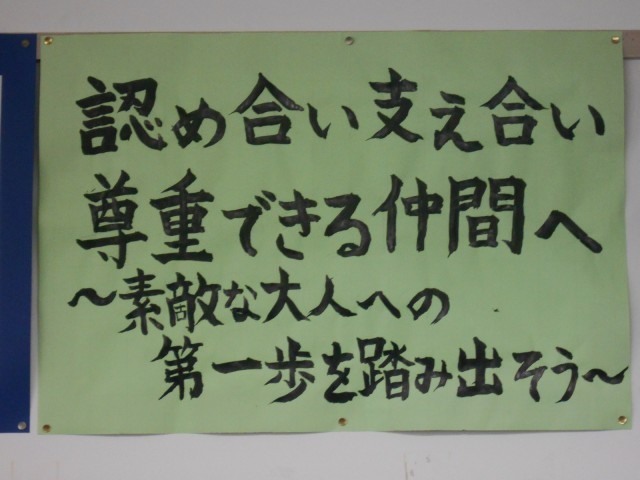 認め合い支え合い
尊重できる仲間へ
～素敵な大人への
第一歩を踏み出そう～